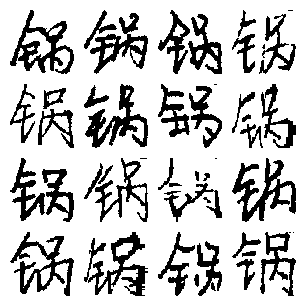 锅锅锅锅
锅锅锅锅
锅锅锅锅
锅锅锅锅